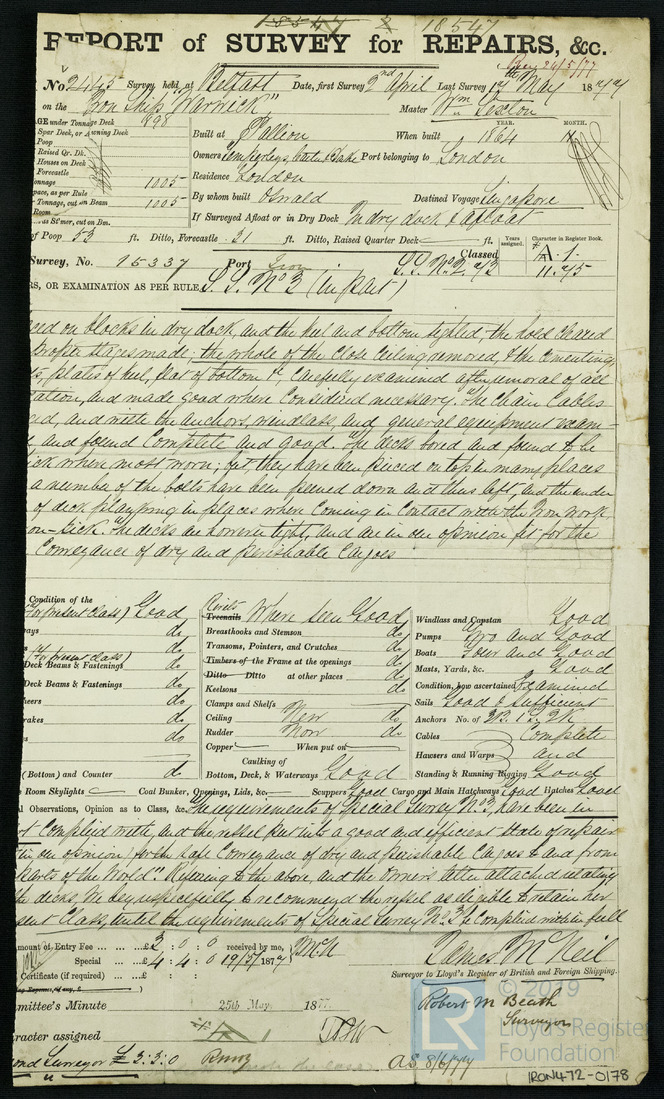 18547
REPORT of SURVEY for REPAIRS, &c.
24/5/77
No. 2445 Survey held at Belfast Date, first Survey 2nd April Last Survey 17th May 1877
on the Iron Ship "Warwick" Master Wm Sexton
AGE under Tonnage Deck 898
Spar Deck, or Awning Deck
Poop
Raised Qr. Dk.
Houses on Deck
Forecastle
onnage 1005
pace, as per Rule
Tonnage, cut on Beam 1005
Room
as St'mer, cut on Bm.
Built at Pallion When built YEAR. 1864 MONTH. 11
Owners Temperleys, Carter & Darke Port belonging to London
Residence London
By whom built Oswald Destined Voyage Singapore
If Surveyed Afloat or in Dry Dock In dry dock & afloat
of Poop 53 ft. Ditto, Forecastle 31 ft. Ditto, Raised Quarter Deck — ft.
Years assigned. Character in Register Book.
Survey, No. 15337 Port Iron Classed S.S. No. 2. 4/3 A.1. 11.75
RS, OR EXAMINATION AS PER RULE, S.S. No 3 (in part)
ced on blocks in dry dock, and the keel and bottom sighted; the hold cleared
proper stages made; the whole of the close ceiling removed, & the cementing,
ts, plates of keel, flat of bottom &c, carefully examined after removal of all
dation, and made good where considered necessary. The Chain Cables
ed, and with the anchors, windlass, and general equipment exam-
d and found complete and good. The decks bored and found to be
ick where most worn; but they have been pieced on top in many places
a number of the bolts have been peened down and thus left, and the under
of deck planking in places where coming in contact with the Iron work
on-sick. The decks are however tight, and are in our opinion fit for the
Conveyance of dry and perishable Cargoes
Condition of the
(For present class) Good
ays do
(For present class)
Deck Beams & Fastenings do
Deck Beams & Fastenings do
heers do
rakes do
s do
(Bottom) and Counter do
Rivets
Treenails Where seen Good
Breasthooks and Stemson do
Transoms, Pointers, and Crutches do
Timbers of the Frame at the openings do
Ditto Ditto at other places do
Keelsons do
Clamps and Shelfs
Ceiling New do
Rudder Now do
Copper — When put on —
Caulking of
Bottom, Deck, & Waterways Good
Windlass and Capstan Good
Pumps Two and Good
Boats Four and Good
Masts, Yards, &c. Good
Condition, how ascertained Examined
Sails Good & Sufficient
Anchors No. of 3B. 1S. 2K
Cables Complete
Hawsers and Warps and
Standing & Running Rigging Good
Room Skylights — Coal Bunker, Openings, Lids, &c. — Scuppers Good Cargo and Main Hatchways Good Hatches Good
l Observations, Opinion as to Class, &c. The requirements of Special Survey No 3, have been in
t complied with, and the vessel put into a good and efficient state of repair
(in our opinion) for the safe Conveyance of dry and perishable Cargoes to and from
parts of the World". Referring to the above, and the Owners letter attached relating
the decks, We beg respectfully to recommend the vessel as eligible to retain her
sent Class, until the requirements of Special Survey No 3 be complied with in full
Amount of Entry Fee ... ... ... £ 3 : 0 : 0 received by me, J. McN
Special ... ... £ 4 : 4 : 0 19/5/1877
Certificate (if required) ... £ : :
James McNeil
Surveyor to Lloyd's Register of British and Foreign Shipping.
Robert M Beath
Surveyor
mmittee's Minute 25th May 1877.
aracter assigned A1
ond Surveyor £3:3:0
AS 8/6/77
© 2019
LR
Lloyd's Register
Foundation
IRON472-0178